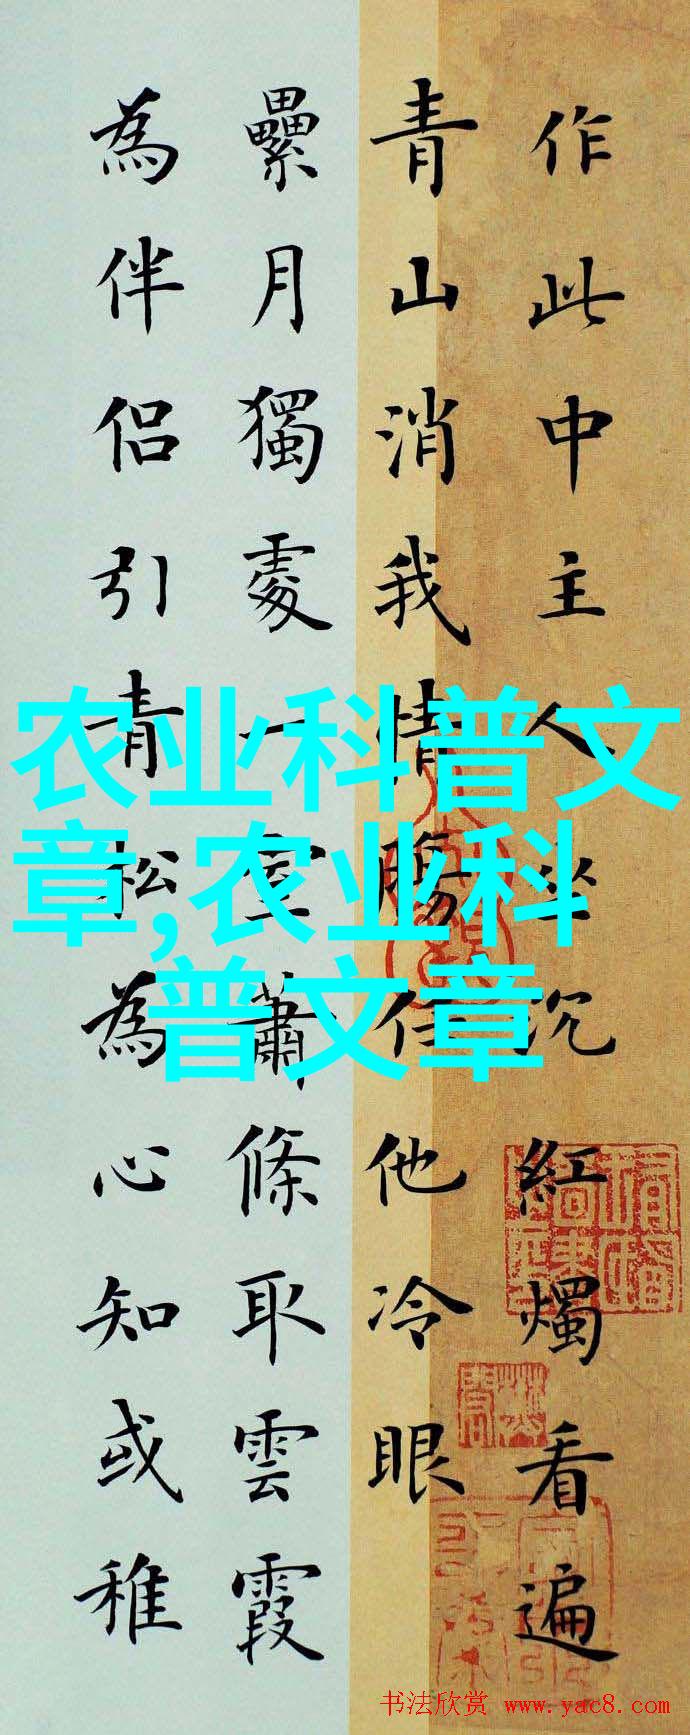 作此中主人坐沉紅燭看遍
青山消我情腸任他冷眼
纍月獨處一室蕭條取雲霞
為伴侶引青松為心知或稚
农业科普文
章,农业科
普文章
书法欣赏 www.yac8.com